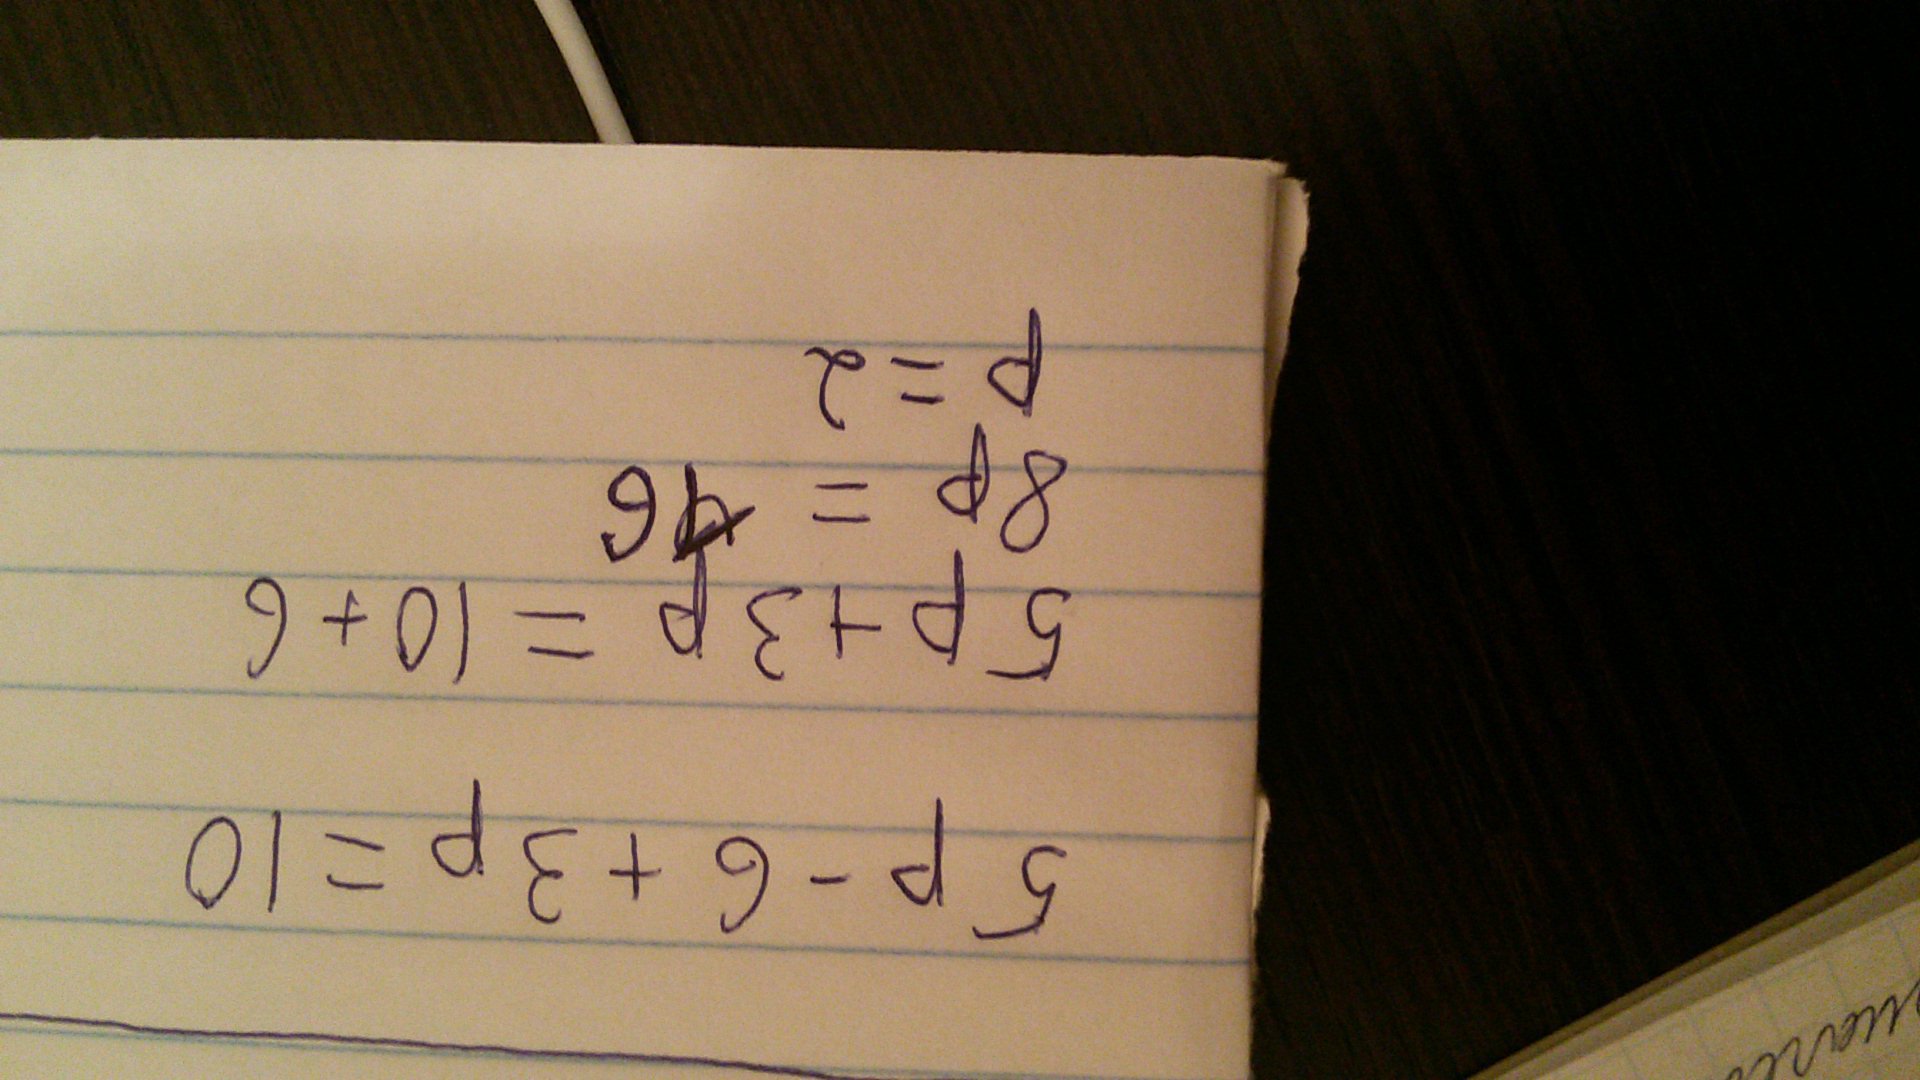 5p - 6 + 3p = 10
5p + 3p = 10 + 6
8p = 16
p = 2